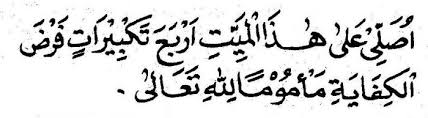 اُصَلِّيْ عَلٰى هٰذَا الْمَيِّتِ اَرْبَعَ تَكْبِيْرَاتٍ فَرْضَ
الْكِفَايَةِ مَأْمُوْمًا لِلّٰهِ تَعَالٰى .